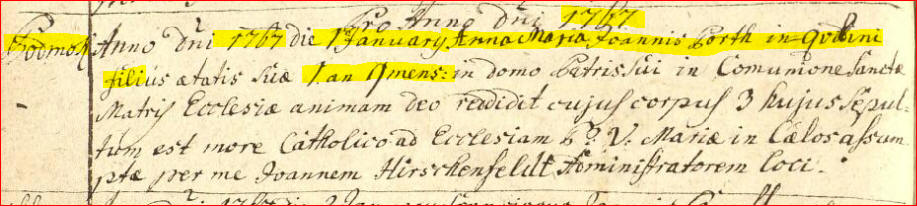 Pro Anno dnı 1767
Anno dnı 1767 die 1 January Anna Maria Joannis Porth in
filius ætatis suæ 1 an 9 mens: in domo Patris sui in Comunione Sanctæ
Matris Ecclesiæ animam deo reddidit cujus corpus 3 hujus Sepul-
tum est more Catholico ad Ecclesiam V: Mariæ in Cælos assum
ptæ per me Joannem Hirschenfeldt Administratorem Loci.